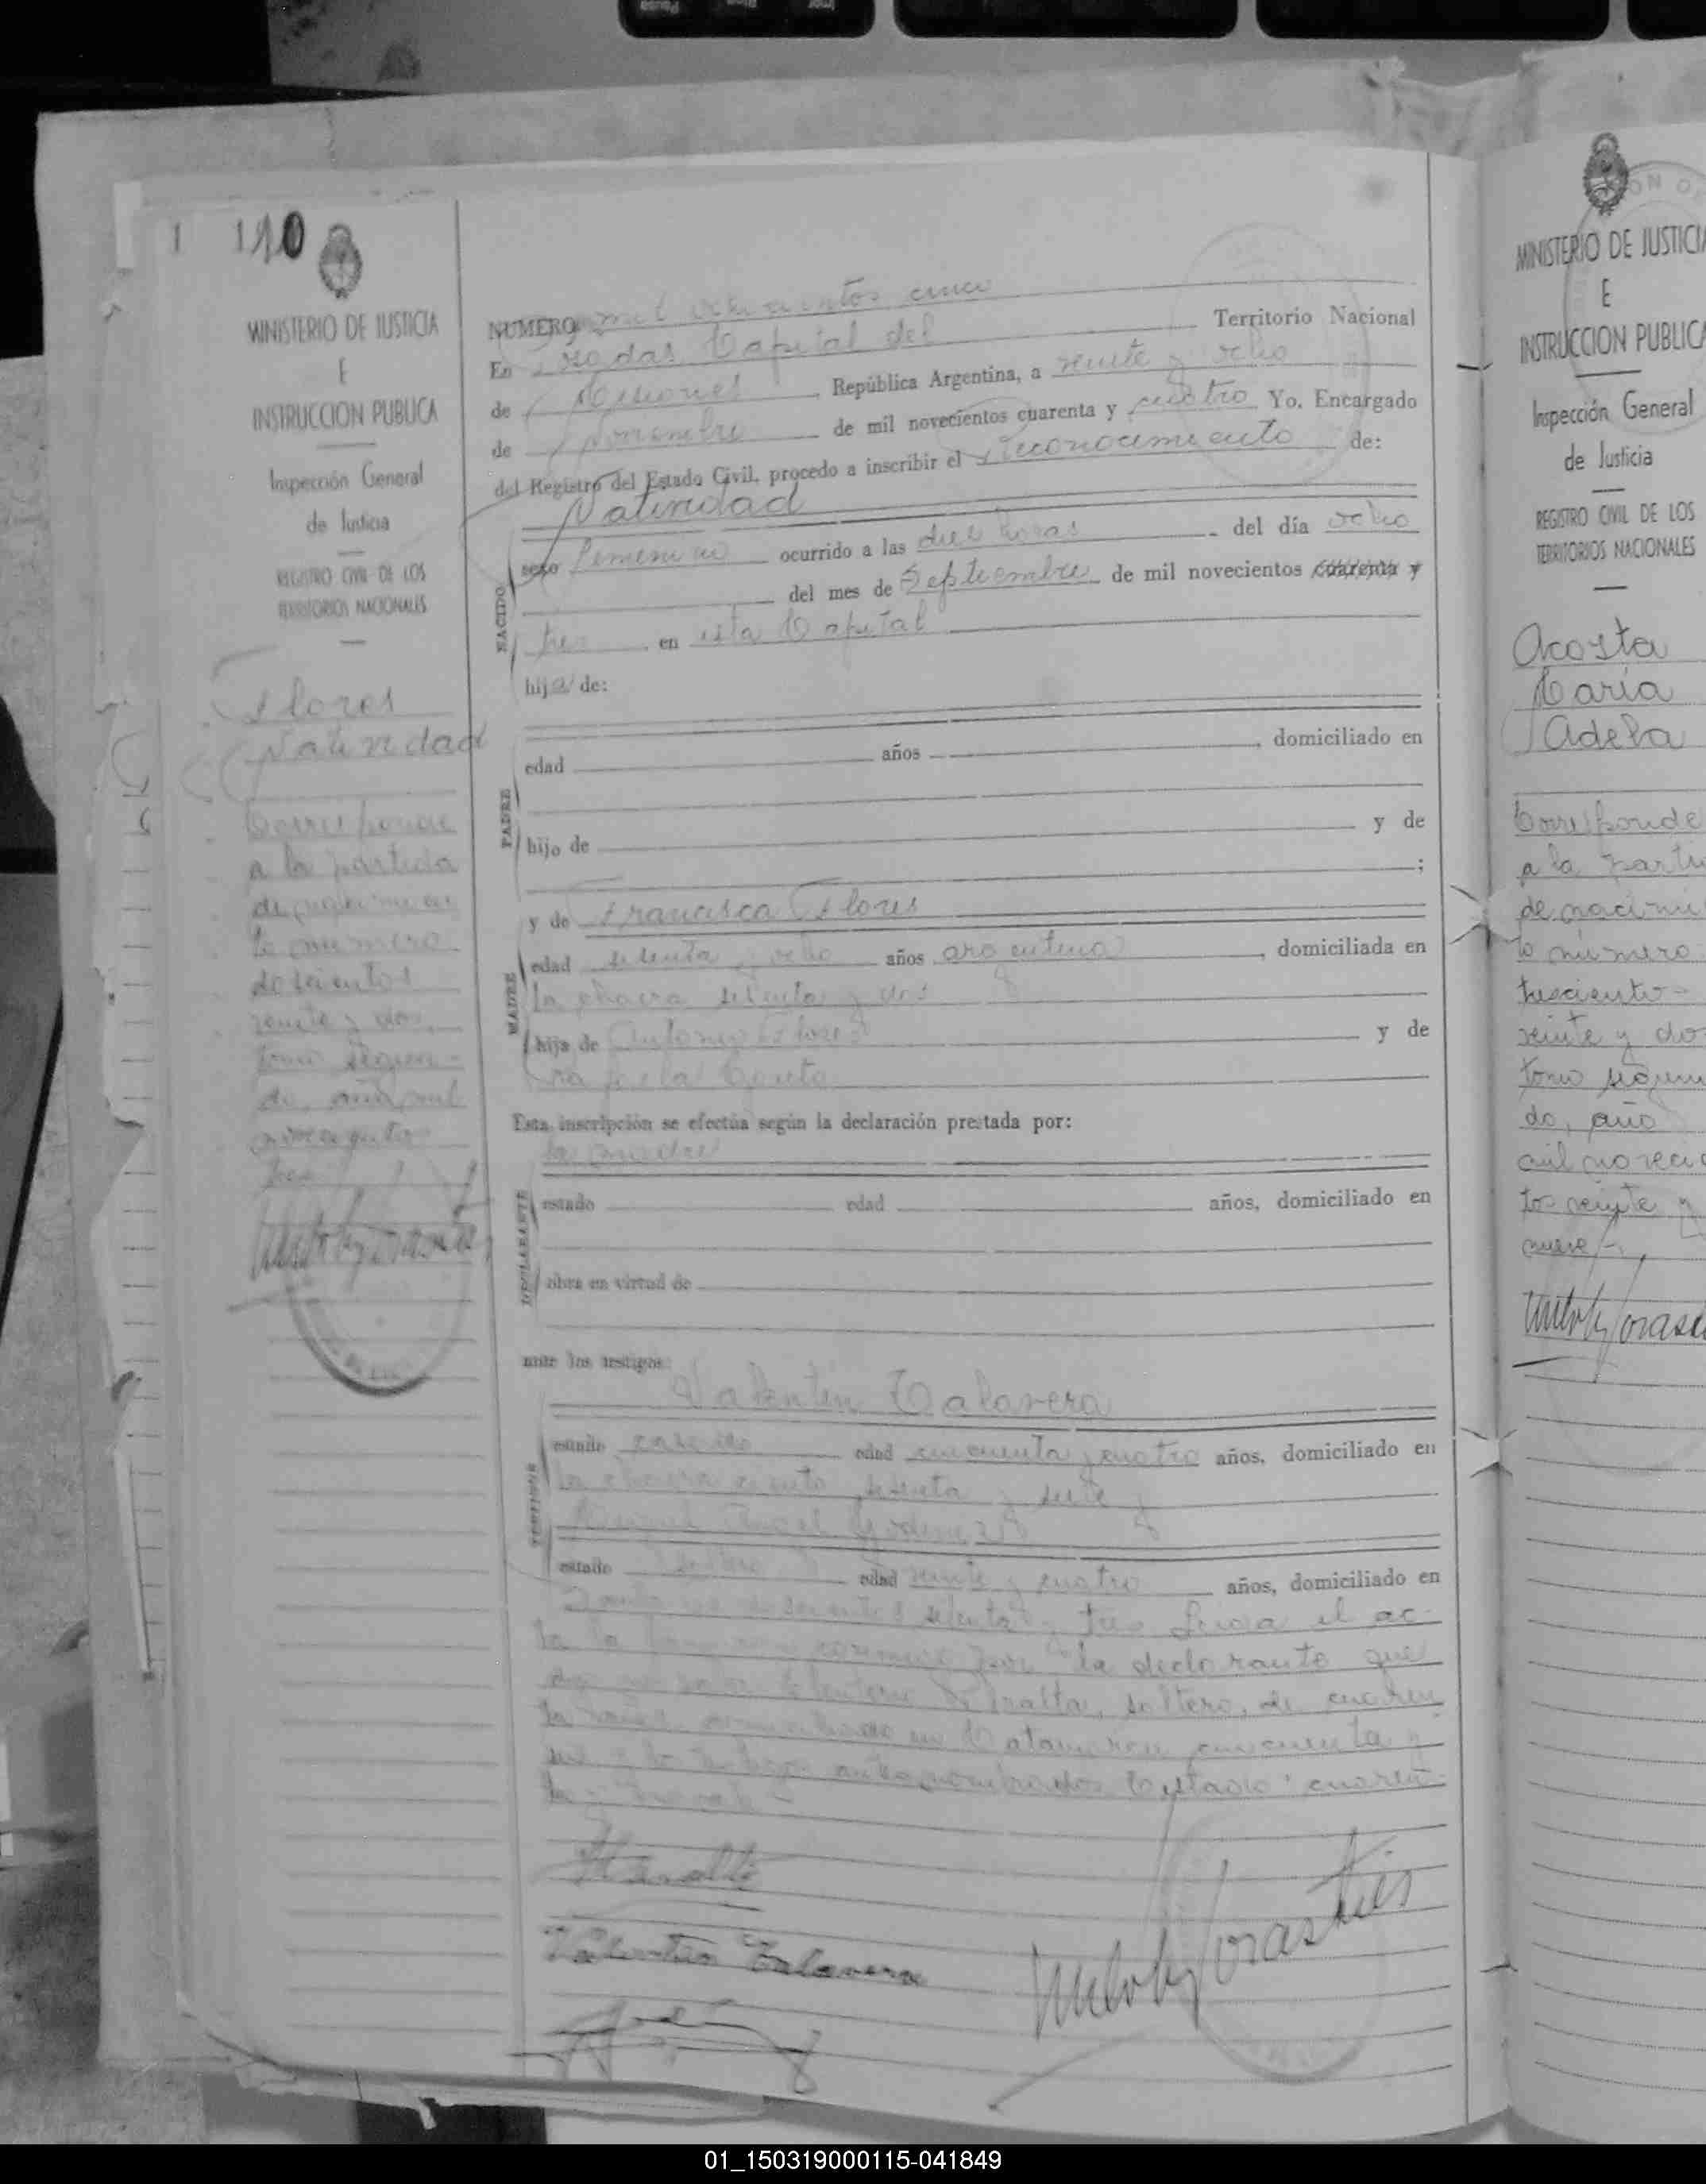 1 110
MINISTERIO DE JUSTICIA
E
INSTRUCCION PUBLICA
Inspección General
de Justicia
REGISTRO CIVIL DE LOS
TERRITORIOS NACIONALES
Flores
Natividad
Corresponde
a la partida
de nacimien
to numero
doscientos
veinte y dos,
tomo segun-
do, año mil
novecientos
tres
NUMERO mil ochocientos cinco
En Posadas Capital del Territorio Nacional
de Misiones, República Argentina, a veinte y ocho
de Noviembre de mil novecientos cuarenta y cuatro Yo, Encargado
del Registro del Estado Civil, procedo a inscribir el reconocimiento de:
Natividad
NACIDO
sexo femenino ocurrido a las diez horas del día ocho
del mes de Septiembre de mil novecientos cuarenta y
tres en esta Capital
hija de:
PADRE
edad años , domiciliado en
hijo de y de
;
y de Francisca Flores
MADRE
edad setenta y ocho años argentina, domiciliada en
la chacra setenta y dos
hija de Antonio Flores y de
Esta inscripción se efectúa según la declaración prestada por:
la madre
DECLARANTE
estado edad años, domiciliado en
obra en virtud de
ante los testigos:
Valentin Talavera
TESTIGOS
estado casado edad cincuenta y cuatro años, domiciliado en
la chacra ciento sesenta y siete y
Miguel Angel Godinez
estado soltero edad veinte y cuatro años, domiciliado en
doscientos setenta y tres firma el ac-
ta por la declarante que
Peralta, soltero, de cuaren
ta años, domiciliado en Catamarca cincuenta y
antes nombrados Testado: cuaren-
ta y
Valentin Talavera
MINISTERIO DE JUSTICIA
E
INSTRUCCION PUBLICA
Inspección General
de Justicia
REGISTRO CIVIL DE LOS
TERRITORIOS NACIONALES
Acosta
Maria
Adela
Corresponde
a la parti
de nacimi
to numero
trescientos
veinte y do
tomo segun
do, año
mil noveci
tos veinte y
nueve
01_150319000115-041849